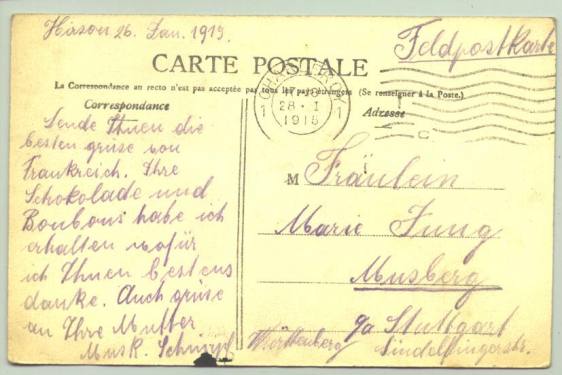 Hirson 26. Jan. 1915.
Feldpostkarte
CARTE POSTALE
La Correspondance au recto n'est pas acceptée par tous les pays étrangers (Se renseigner à la Poste.)
Correspondance
Adresse
28 - I
1915
1 1
C
Sende Ihnen die
besten grüse von
Frankreich. Ihre
Schokolade und
Bonbons habe ich
erhalten wofür
ich Ihnen bestens
danke. Auch grüse
an Ihre Mutter
Musk.
M Fräulein
Marie Jung
Musberg
Stuttgart
Württemberg
Sindelfingerstr.